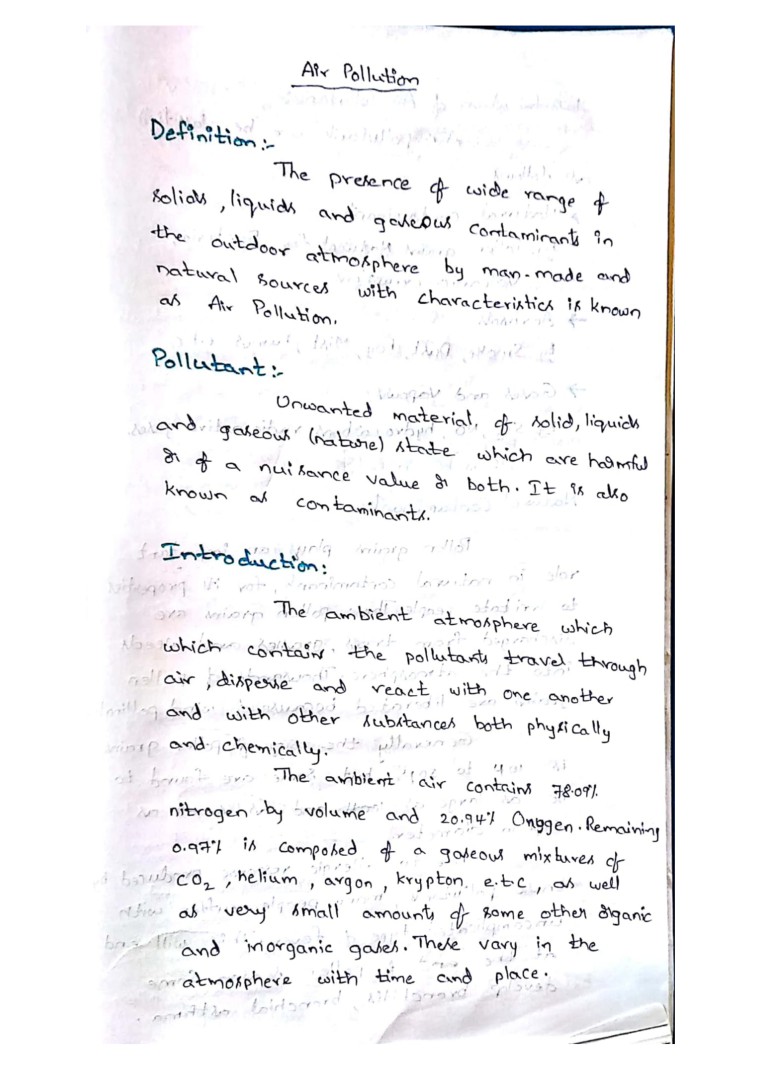 Air Pollution
Definition:-
The presence of wide range of
solids, liquids and gaseous contaminants in
the outdoor atmosphere by man-made and
natural sources with characteristics is known
as Air Pollution.
Pollutant:-
Unwanted material, of solid, liquids
and gaseous (nature) state which are harmful
or of a nuisance value or both. It is also
known as contaminants.
Introduction:
The ambient atmosphere which
which contains the pollutants travel through
air, disperse and react with one another
and with other substances both physically
and chemically.
The ambient air contains 78.09%
nitrogen by volume and 20.94% Onygen. Remaining
0.97% is composed of a gaseous mixtures of
CO2, helium, argon, krypton. e.t.c, as well
as very small amounts of some other organic
and inorganic gases. These vary in the
atmosphere with time and place.